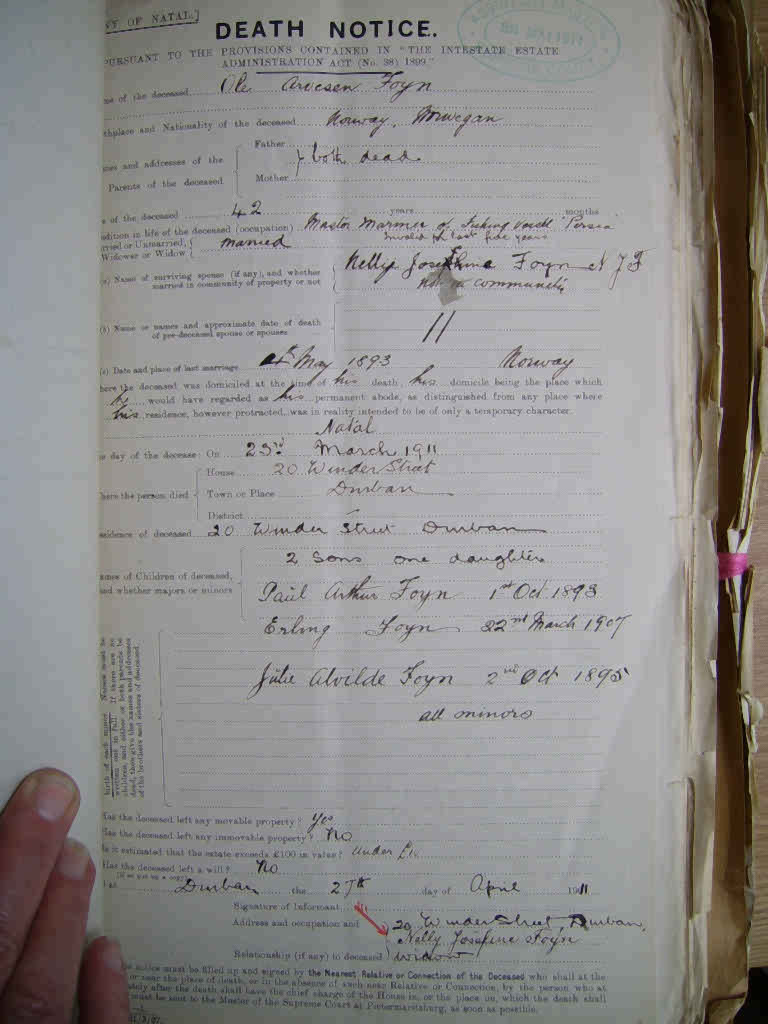 NY OF NATAL.]
DEATH NOTICE.
PURSUANT TO THE PROVISIONS CONTAINED IN "THE INTESTATE ESTATE
ADMINISTRATION ACT (No. 38) 1899."
me of the deceased Ole Arvesen Foyn
thplace and Nationality of the deceased Norway, Norwegan
Father
mes and addresses of the both dead
Parents of the deceased
Mother
e of the deceased 42 years months
ondition in life of the deceased (occupation) Master Marinier of Fishing Vessell Persia
Invalid for last five years
rried or Unmarried, married
Widower or Widow
(a) Name of surviving spouse (if any), and whether Nelly Josefine Foyn N J F
married in community of property or not not in community
(b) Name or names and approximate date of death
of pre-deceased spouse or spouses
(c) Date and place of last marriage May 1893 Norway
here the deceased was domiciled at the time of his death, his domicile being the place which
he would have regarded as his permanent abode, as distinguished from any place where
his residence, however protracted, was in reality intended to be of only a temporary character.
Natal
e day of the decease: On 23rd March 1911
House 20 Winder Street
here the person died Town or Place Durban
District
esidence of deceased 20 Winder Street Durban
2 Sons one daughter
ames of Children of deceased,
nd whether majors or minors Paul Arthur Foyn 1st Oct 1893
Erling Foyn 22nd March 1907
Julie Alvilde Foyn 2nd Oct 1895
all minors
birth of each minor. Names must be
written out in full. If there are no
children, and either or both parents be
dead, then give the names and addresses
of the brothers and sisters of deceased.
Has the deceased left any movable property? Yes
Has the deceased left any immovable property? No
Is it estimated that the estate exceeds £100 in value? under
Has the deceased left a will? No
at Durban the 27th day of April 1911
Signature of Informant
Address and occupation and 20 Winder Street Durban,
Nelly Josefine Foyn
Relationship (if any) to deceased widow
notice must be filled up and signed by the Nearest Relative or Connection of the Deceased who shall at the
or near the place of death, or in the absence of such near Relative or Connection, by the person who at
ately after the death shall have the chief charge of the House in, or the place on, which the death shall
must be sent to the Master of the Supreme Court at Pietermaritzburg, as soon as possible.